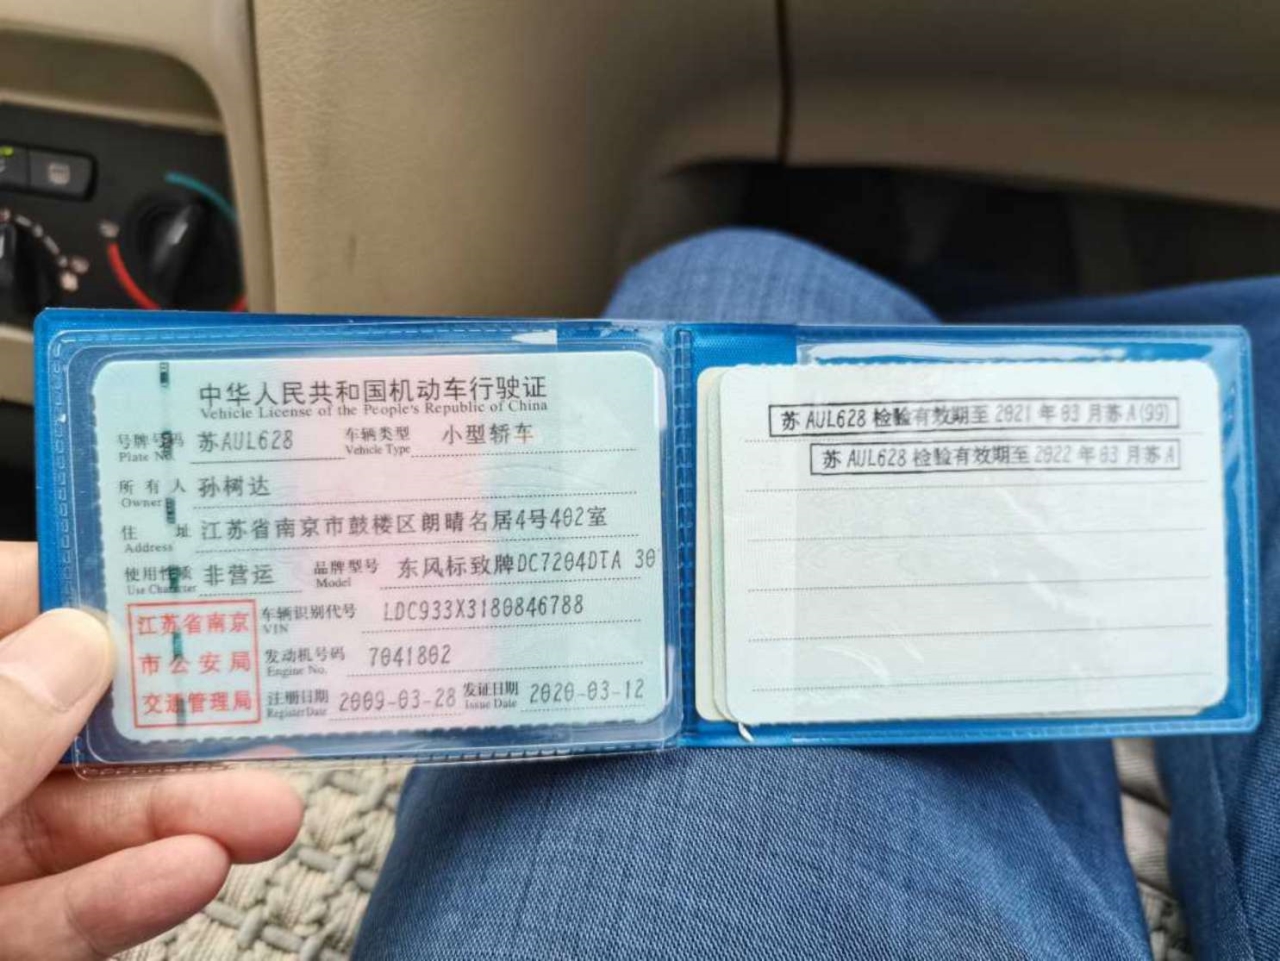 中华人民共和国机动车行驶证
Vehicle License of the People's Republic of China
号牌号码 苏AUL628 车辆类型 小型轿车
Plate No. Vehicle Type
所有人 孙树达
Owner
住址 江苏省南京市鼓楼区朗晴名居4号402室
Address
使用性质 非营运 品牌型号 东风标致牌DC7204DTA 307
Use Character Model
江苏省南京
市公安局
交通管理局
车辆识别代号 LDC933X3180846788
VIN
发动机号码 7041802
Engine No.
注册日期 2009-03-28 发证日期 2020-03-12
Register Date Issue Date
苏AUL628 检验有效期至 2021 年 03 月苏A(99)
苏AUL628 检验有效期至 2022 年 03 月苏A